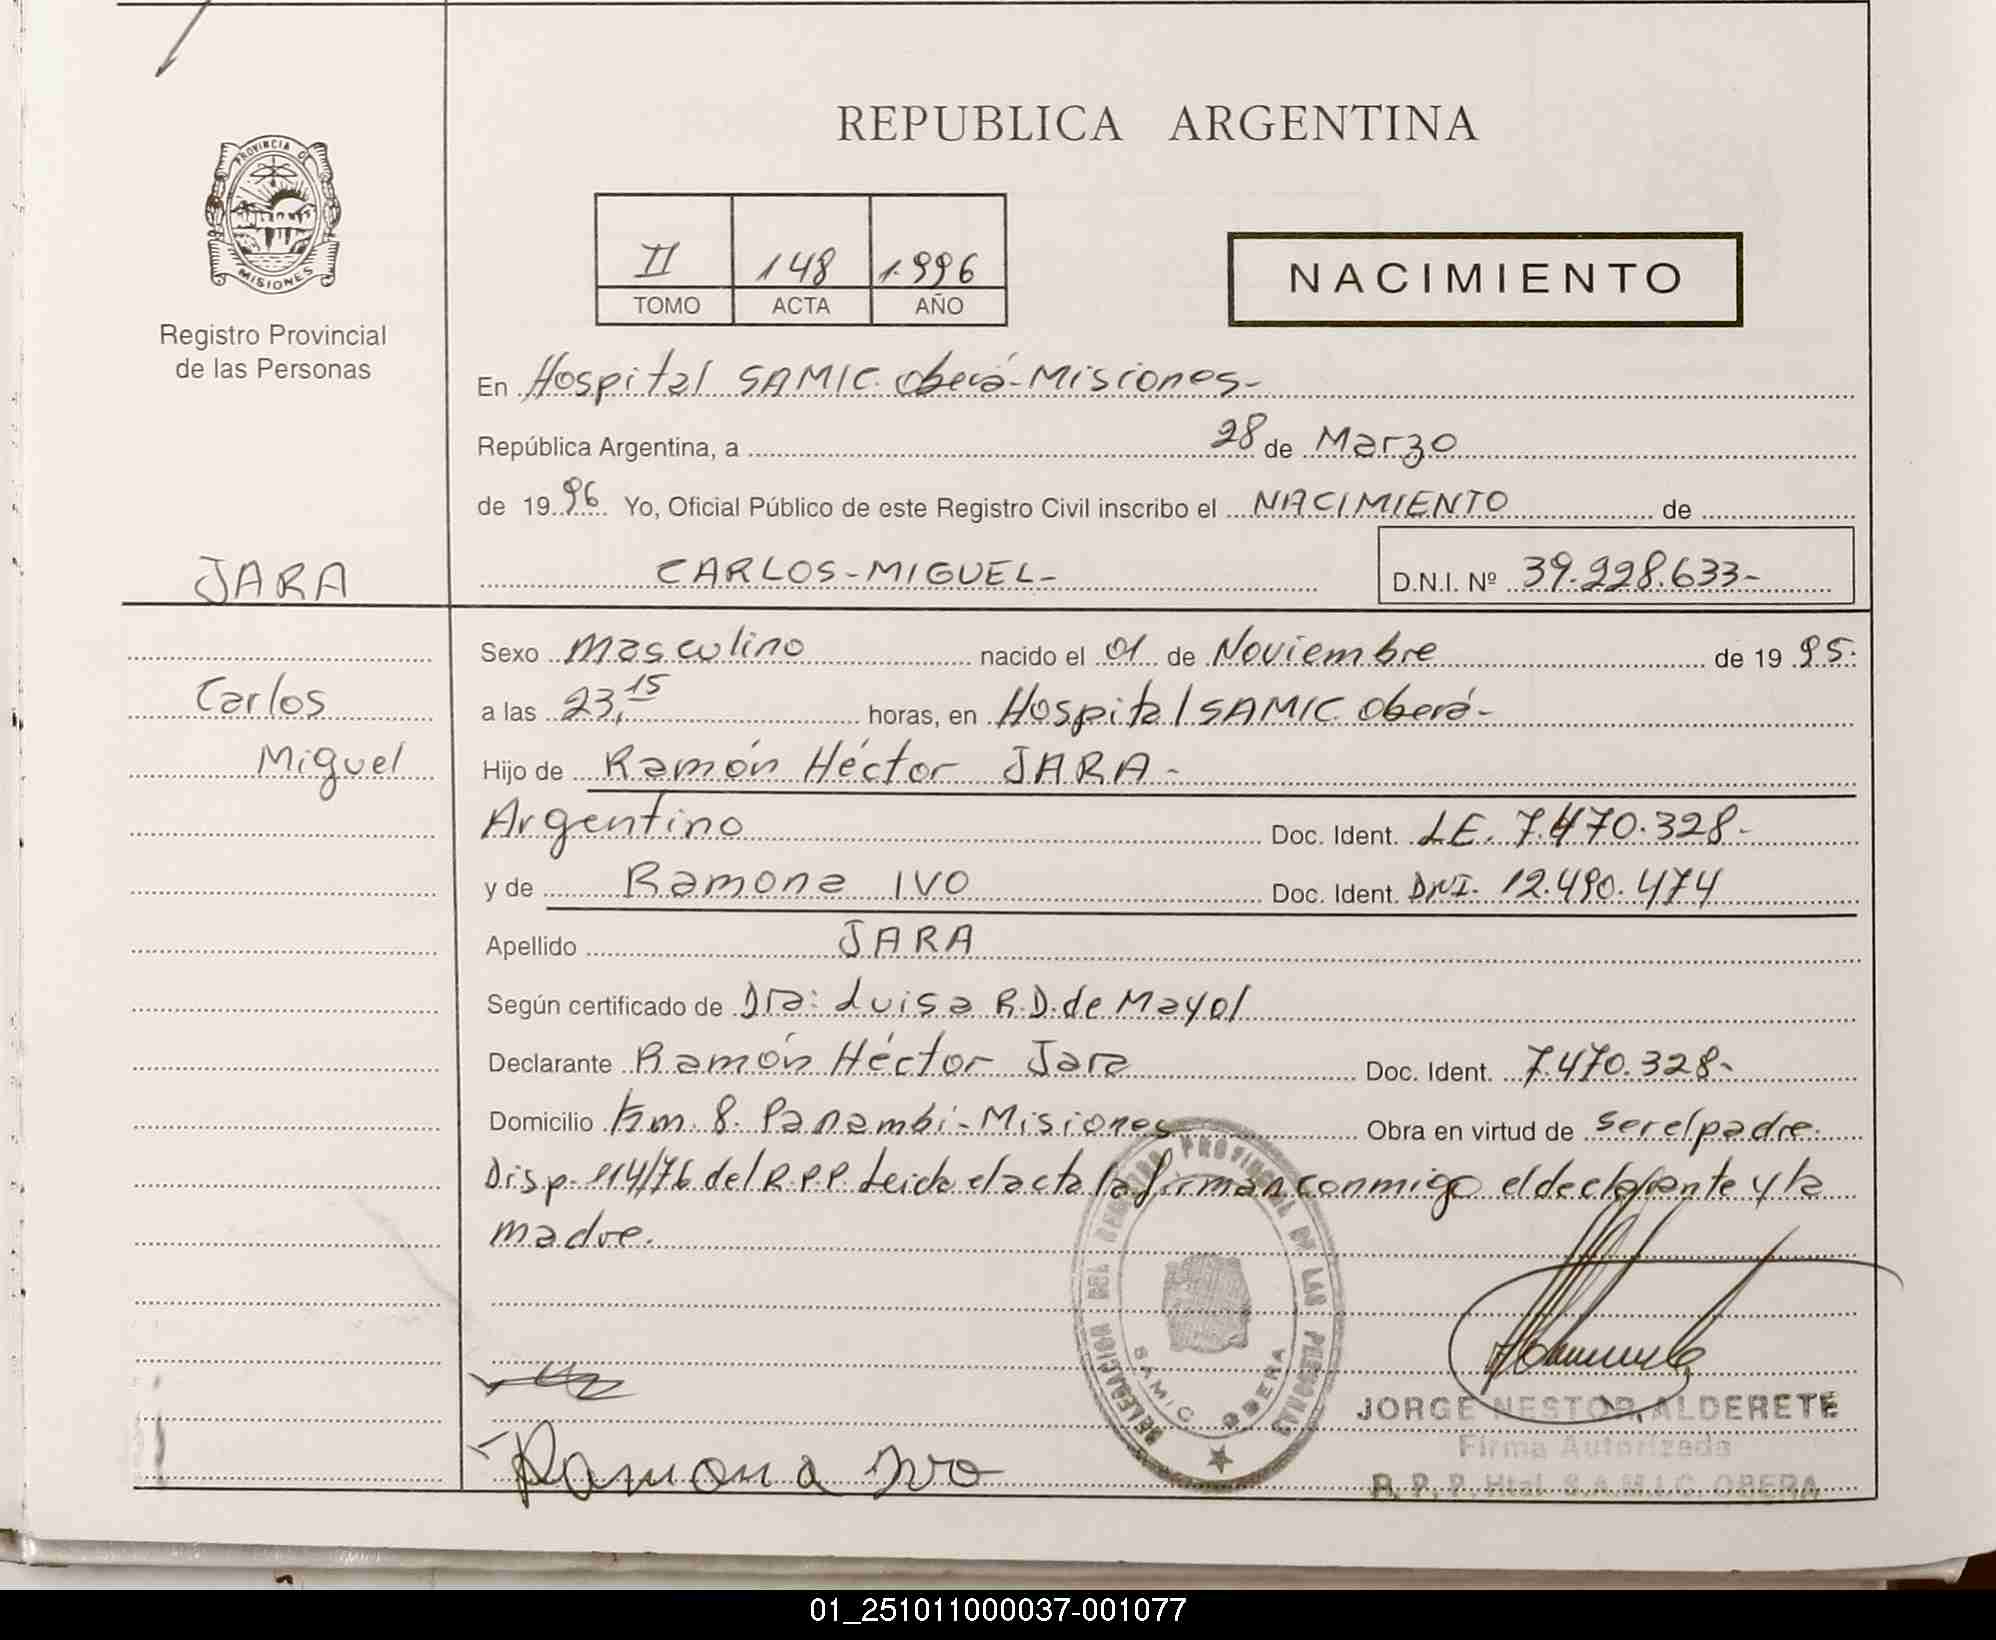 REPUBLICA ARGENTINA
PROVINCIA DE
MISIONES
Registro Provincial
de las Personas
II 148 1.996
TOMO ACTA AÑO
NACIMIENTO
En Hospital SAMIC. Oberá-Misiones-
República Argentina, a 28 de Marzo
de 1996 Yo, Oficial Público de este Registro Civil inscribo el NACIMIENTO de
JARA
CARLOS-MIGUEL- D.N.I. Nº 39.228.633-
Sexo Masculino nacido el 01 de Noviembre de 1995.
Carlos
a las 23,15 horas, en Hospital SAMIC. Oberá-
Miguel
Hijo de Ramón Héctor JARA-
Argentino Doc. Ident. LE. 7.470.328-
y de Ramona IVO Doc. Ident. DNI. 12.490.474
Apellido JARA
Según certificado de Dra: Luisa R.D. de Mayol
Declarante Ramón Héctor Jara Doc. Ident. 7.470.328-
Domicilio Km. 8. Panambí-Misiones Obra en virtud de ser el padre.
Disp. 114/76 del R.P.P. Leida el acta la firman conmigo el declarante y la
madre.
DELEGACION DEL REGISTRO PROVINCIAL DE LAS PERSONAS
SAMIC OBERA
JORGE NESTOR ALDERETE
Firma Autorizada
R.P.P. Htal S.A.M.I.C. OBERA
Ramona Ivo
01_251011000037-001077